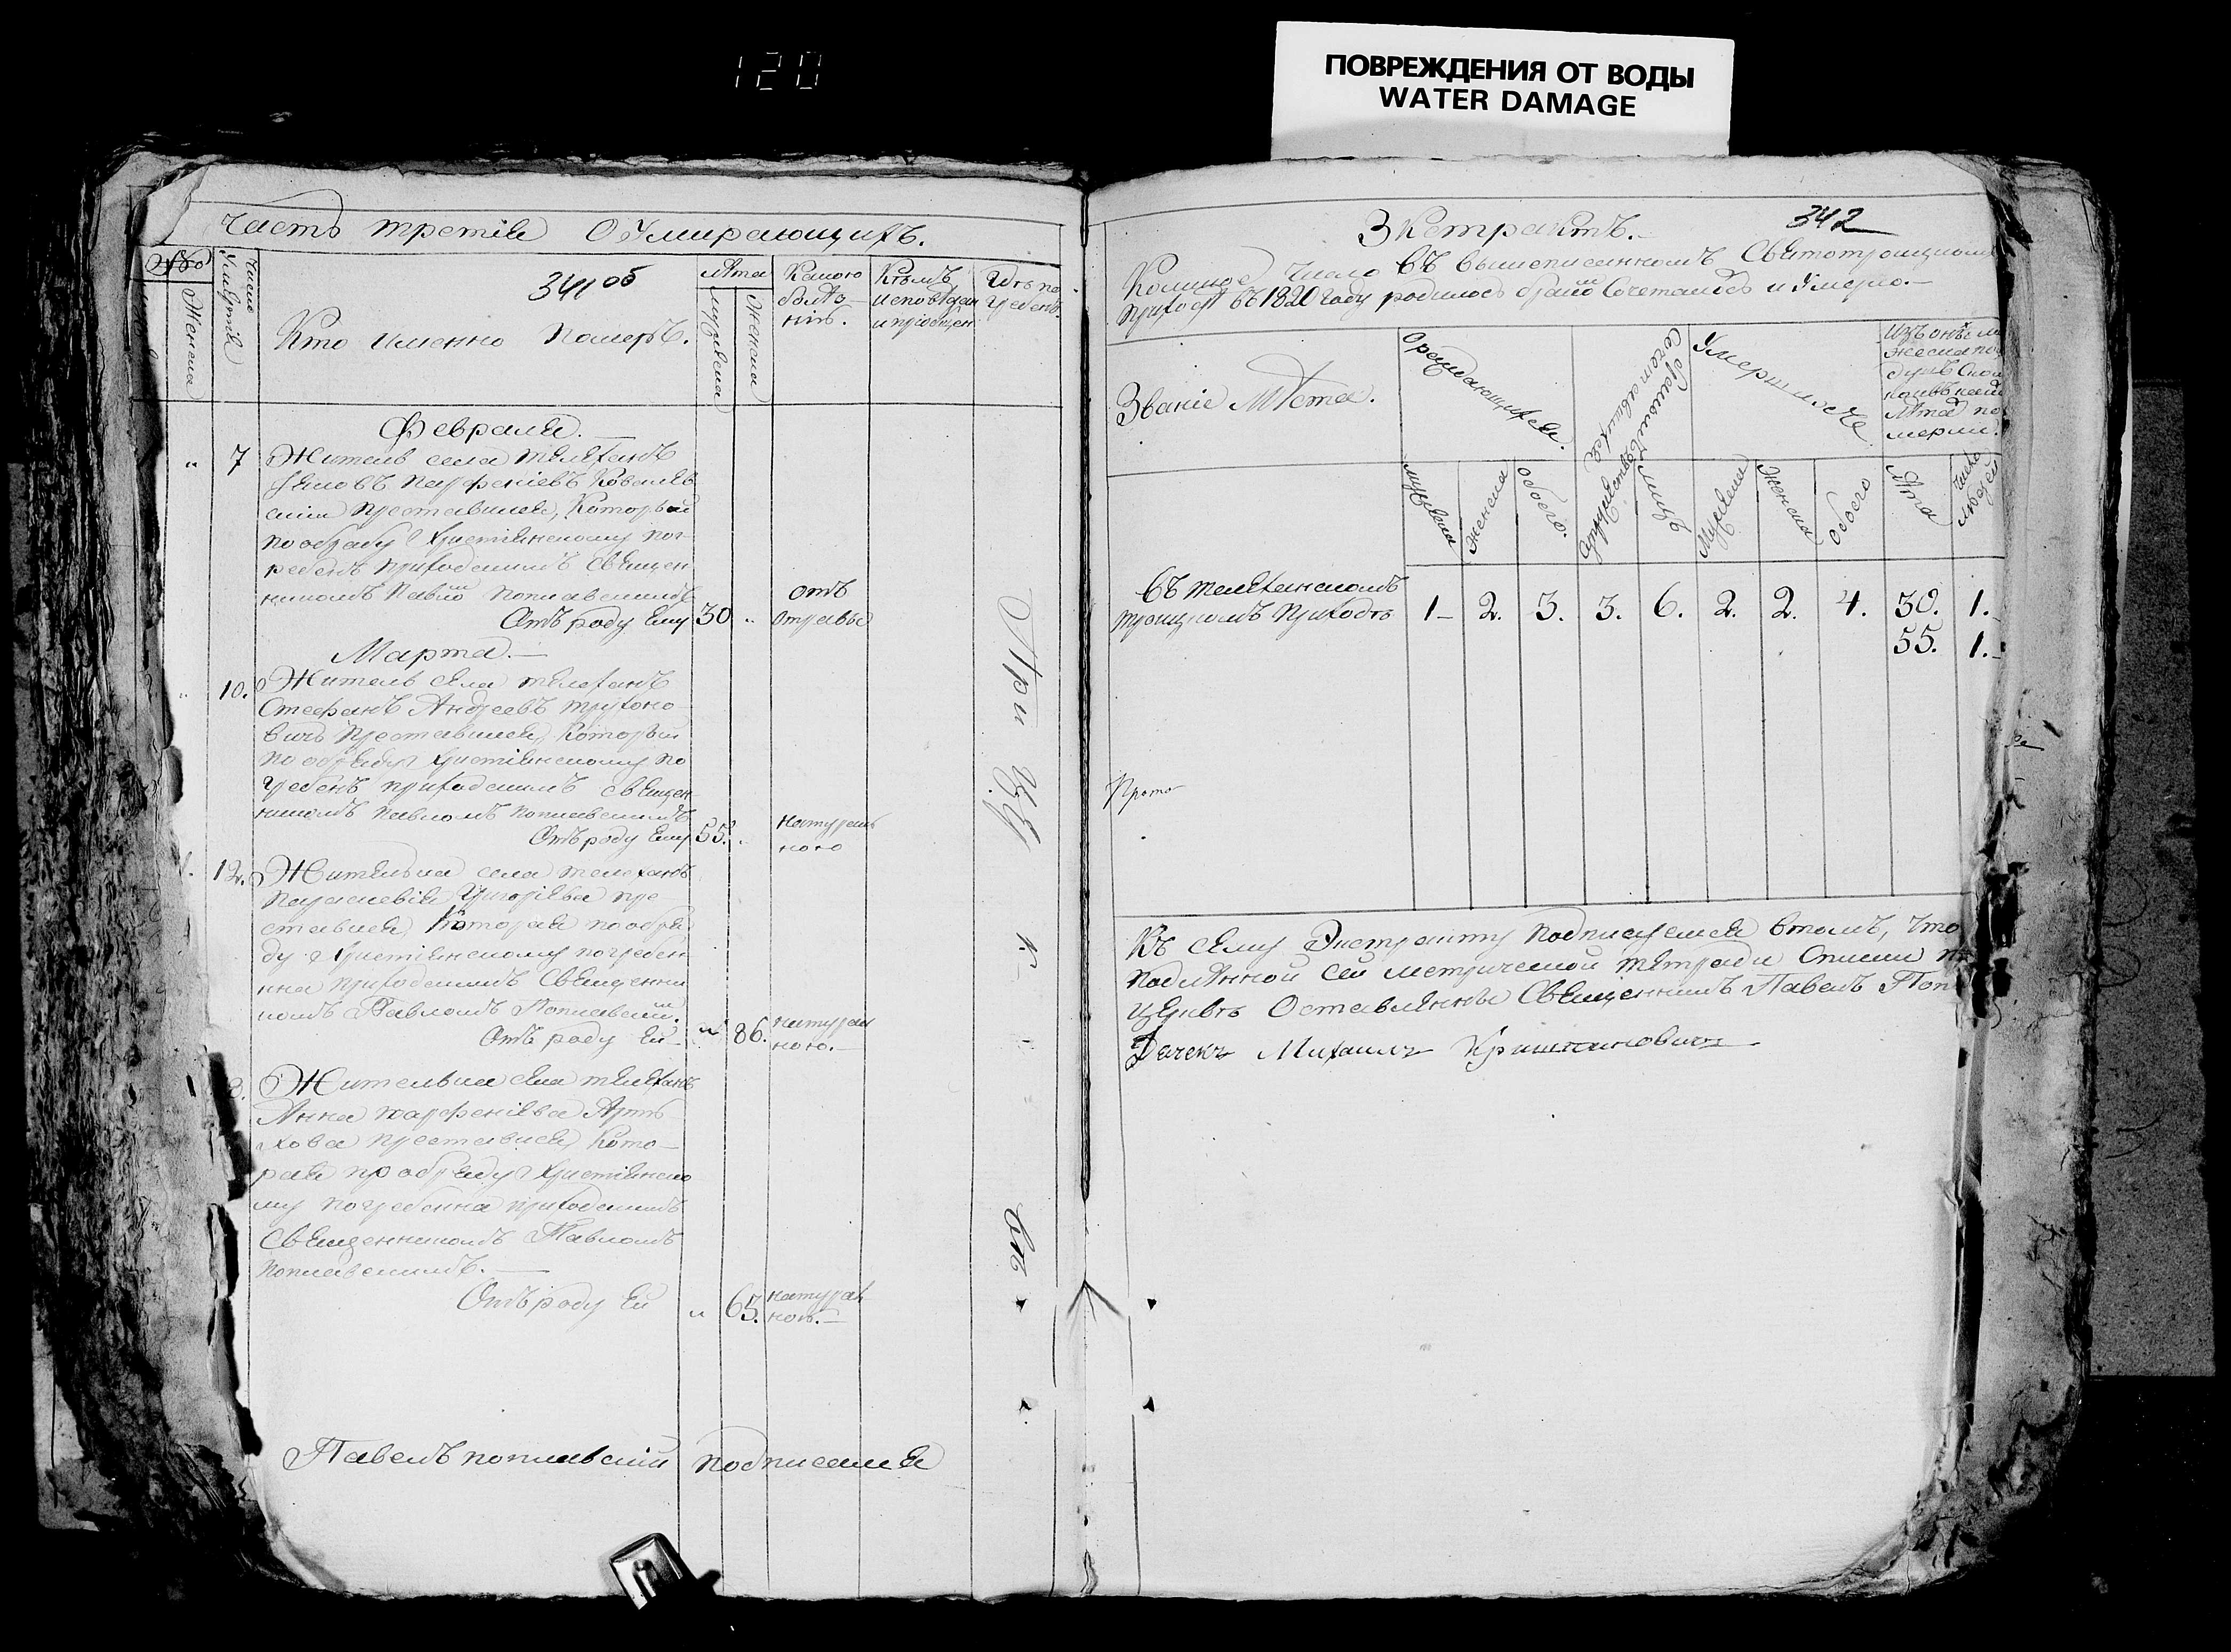 120
ПОВРЕЖДЕНИЯ ОТ ВОДЫ
WATER DAMAGE
Часть третія О Умирающихъ.
341 об
Число Умертія
Женска
Кто именно Померъ.
Лѣта
Мужеска
Женска
Какою
болѣз
нію.
Кѣмъ
исповѣдан
и пріобщен
Гдѣ по
гребенъ.
Февраля.
7 Житель села Телеханъ
Парфеніевъ Ковалев
скій преставился, Который
по обряду Христіянскому пог
ребенъ приходскимъ Священ
никомъ Павло Поплавскимъ
Отъ роду Ему 30 отъ
отравы
Марта.
10. Житель села Телеханъ
Стефанъ Андреевъ Трухоно
вичъ преставился, Который
по обряду Христіянскому по
гребенъ приходскимъ Священ
никомъ Павломъ Поплавскимъ
Отъ роду Ему 55. натураль
ною
12. Жителька села Телеханъ
Параскевія Григоріева пре
ставися, Которая по обря
ду Христіянскому погребен
нна приходскимъ Священни
комъ Павломъ Поплавским.
Отъ роду Ей 86. натурал
ною.
Жителька села Телеханъ
Анна Парфеніева
преставися, Кото
рая по обряду Христіянско
му погребенна приходскимъ
Священникомъ Павломъ
Поплавскимъ.
Отъ роду Ей 65. натурал
ною.
Павелъ Поплавскій подписался
При
342
Экстрактъ.
Коликое Число Въ вышеписанномъ Святотроицком
приходѣ въ 1820 году родилось бракомъ Сочеталось и Умерло.
Званіе Мѣста.
Рождающихся.
Бракомъ Сочетавшихся
Умершихъ
Изъ онѣх
Лѣта по
мерли.
Мужеска
Женска
Обоего.
Супружествъ
Лицъ
Мужеска
Женска
Обоего
Лѣта
Число людей
Въ Телеханскомъ
троицкомъ Приходѣ 1 2. 3. 3. 6. 2. 2. 4. 30. 1.
55. 1.
Прото
Къ сему Экстракту подписуемся втомъ, что
подлѣнной сей метрической тетради Списки
церквѣ Оставленны Священникъ Павелъ Поп
Дячекъ Михаилъ